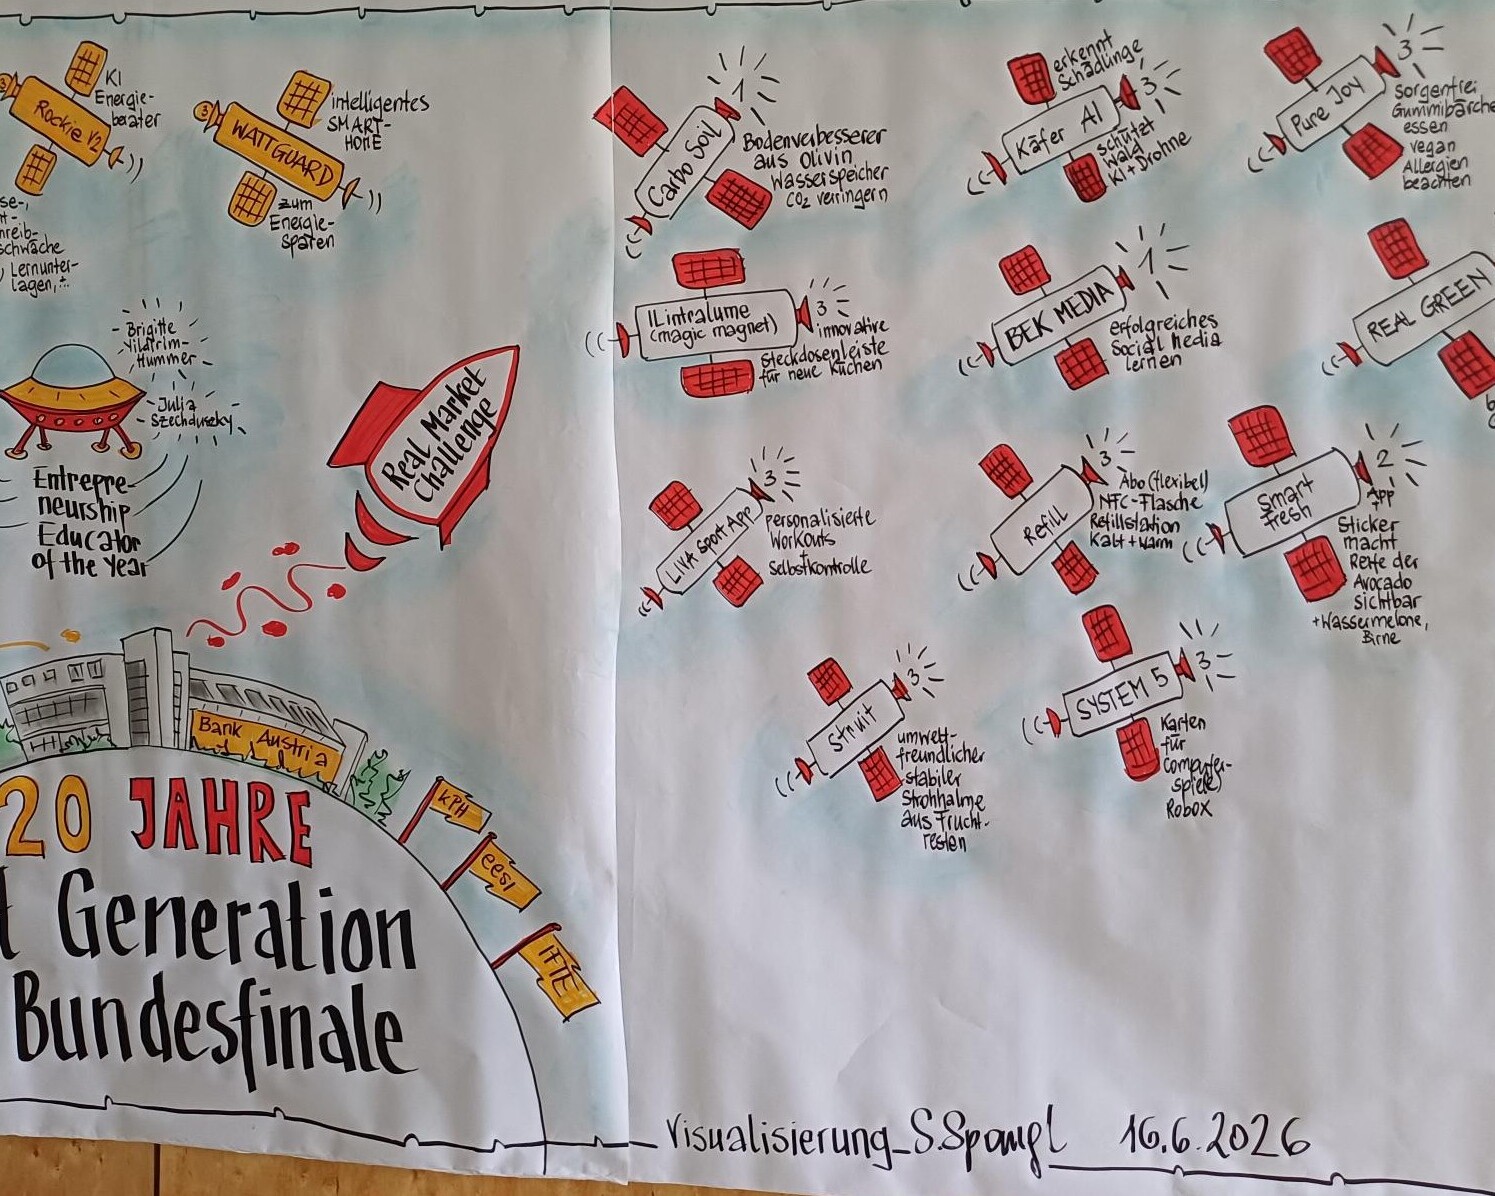 3
Rockie V2
KI
Energie-
berater
3
WATTGUARD
intelligentes
SMART-
HOME
zum
Energie-
sparen
se-,
t-
hreib-
schwäche
Lernunter-
lagen,+..
Brigitte
Yildirim-
Hummer
Julia
Szechdussky
Entrepre-
neurship
Educator
of the Year
Real Market
Challenge
Bank Austria
20 JAHRE
t Generation
Bundesfinale
KPH
eesi
IFTE
Carbo Soil
1
Bodenverbesserer
aus Olivin
Wasserspeicher
CO2 verringern
Käfer AI
3
erkennt
Schädlinge
schützt
Wald
KI + Drohne
Pure Joy
3
sorgenfrei
Gummibärche
essen
vegan
Allergien
beachten
(magic magnet)
3
innovative
Steckdosenleiste
für neue Küchen
BEK MEDIA
1
erfolgreiches
Social Media
lernen
REAL GREEN
LIVA Sport App
3
personalisierte
Workouts
+
Selbstkontrolle
Refill
3
Abo (flexibel)
NFC-Flasche
Refillstation
Kalt + warm
Smart
fresh
2
App
+
Sticker
macht
Reife der
Avocado
sichtbar
+Wassermelone,
Birne
Struit
3
umwelt-
freundlicher
stabiler
Strohhalme
aus Frucht-
resten
SYSTEM 5
3
Karten
für
Computer-
spiele)
Robox
Visualisierung_S.Spangl 16.6.2026